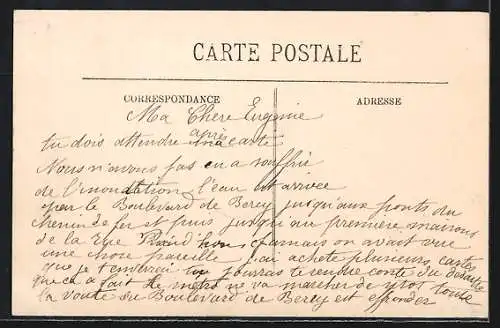 CARTE POSTALE
CORRESPONDANCE
ADRESSE
Ma Chere Eugenie
tu dois attendre après ma carte
Nous n'avons pas eu a souffrir
de l'inondation l'eau est arrivee
par le Boulevard de Bercy jusqu'aux ponts du
chemin de fer et puis jusqu'au première maisons
de la rue jamais on avait vue
une chose pareille j'ai acheté plusieurs cartes
que je t'enverrai tu pourras te rendre conte du desastre
que ca a fait le metro ne va marcher de plus toute
la voute du Boulevard de Bercy est effondrer